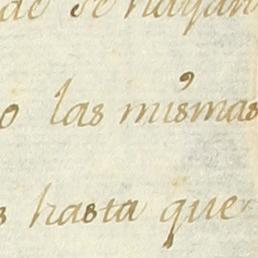 de se hagan
o las mismas
s hasta que